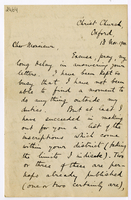 Christ Church
Oxford.
18 Nov. 190
Cher Monsieur,
Excuse, pray, my
long delay in answering your
letters. I have been kept so
busy, that I have not been
able to find a moment to
do any thing outside my
duties. But at last I
have succeeded in making
out for you a list of the
inscriptions which come
within your district (taking
the limits
Two
or three of these are perhaps already published
(one or two certainly are),